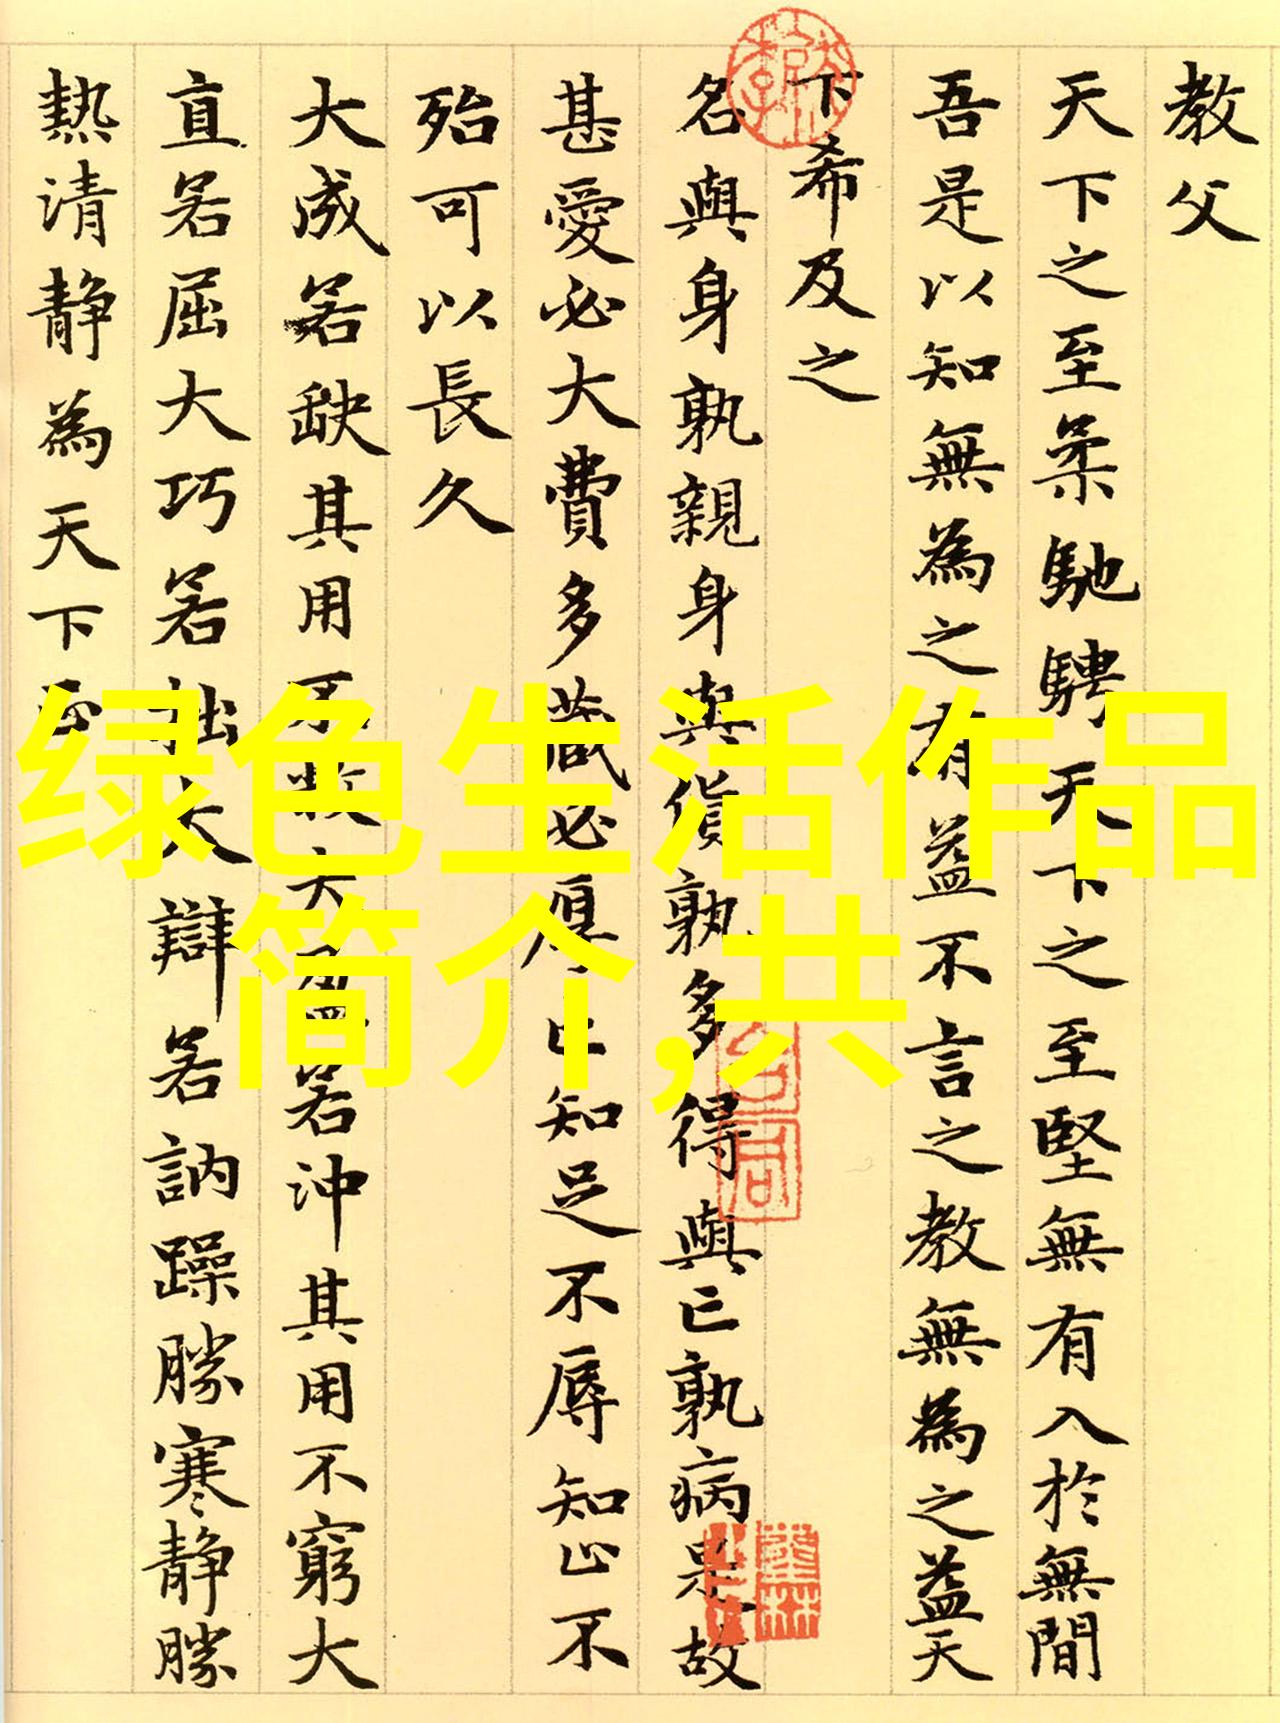 教父
天下之至柔馳騁天下之至堅無有入於無間
吾是以知無為之有益不言之教無為之益天
下希及之
名與身孰親身與貨孰多得與亡孰病是故
甚愛必大費多藏必厚亡知足不辱知止不
殆可以長久
大成若缺其用不敝大盈若沖其用不窮大
直若屈大巧若拙大辯若訥躁勝寒靜勝
熱清靜為天下正
绿色生活作品
简介,共